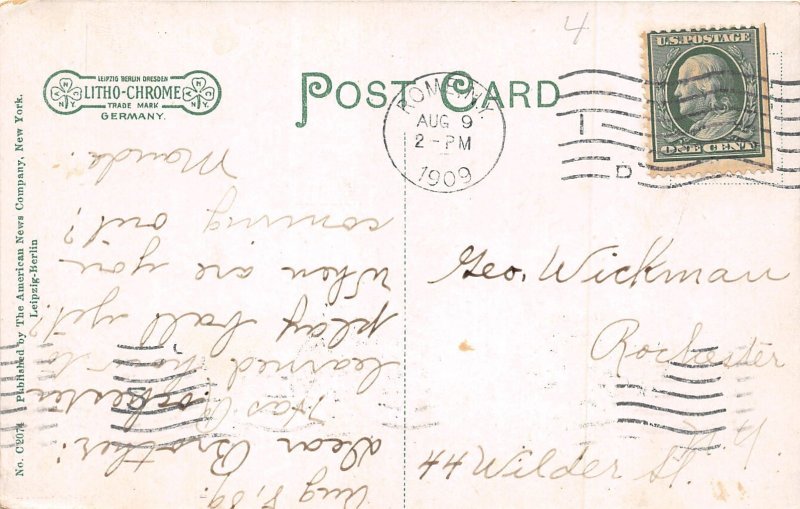 4
POST CARD
LEIPZIG BERLIN DRESDEN
LITHO-CHROME
TRADE MARK
GERMANY.
ROME, N.Y.
AUG 9
2-PM
1909
1
D
U.S. POSTAGE
ONE CENT
No. C2074 Published by The American News Company, New York.
Leipzig-Berlin
Geo. Wickman
Rochester
44 Wilder St. N.Y.
Aug 8, 09.
Dear Brother:
Has Rochester
learned how to
play ball yet?
When are you
coming out?
Maude.